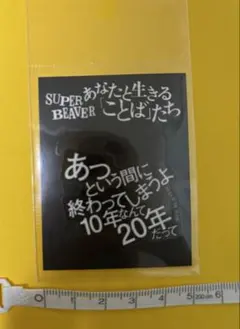 SUPER
BEAVER
あなたと生きる
「ことば」たち
あっ
という間に
終わってしまうよ
10年なんて
20年
だって
0 1 2 3 4 5 200cm 6